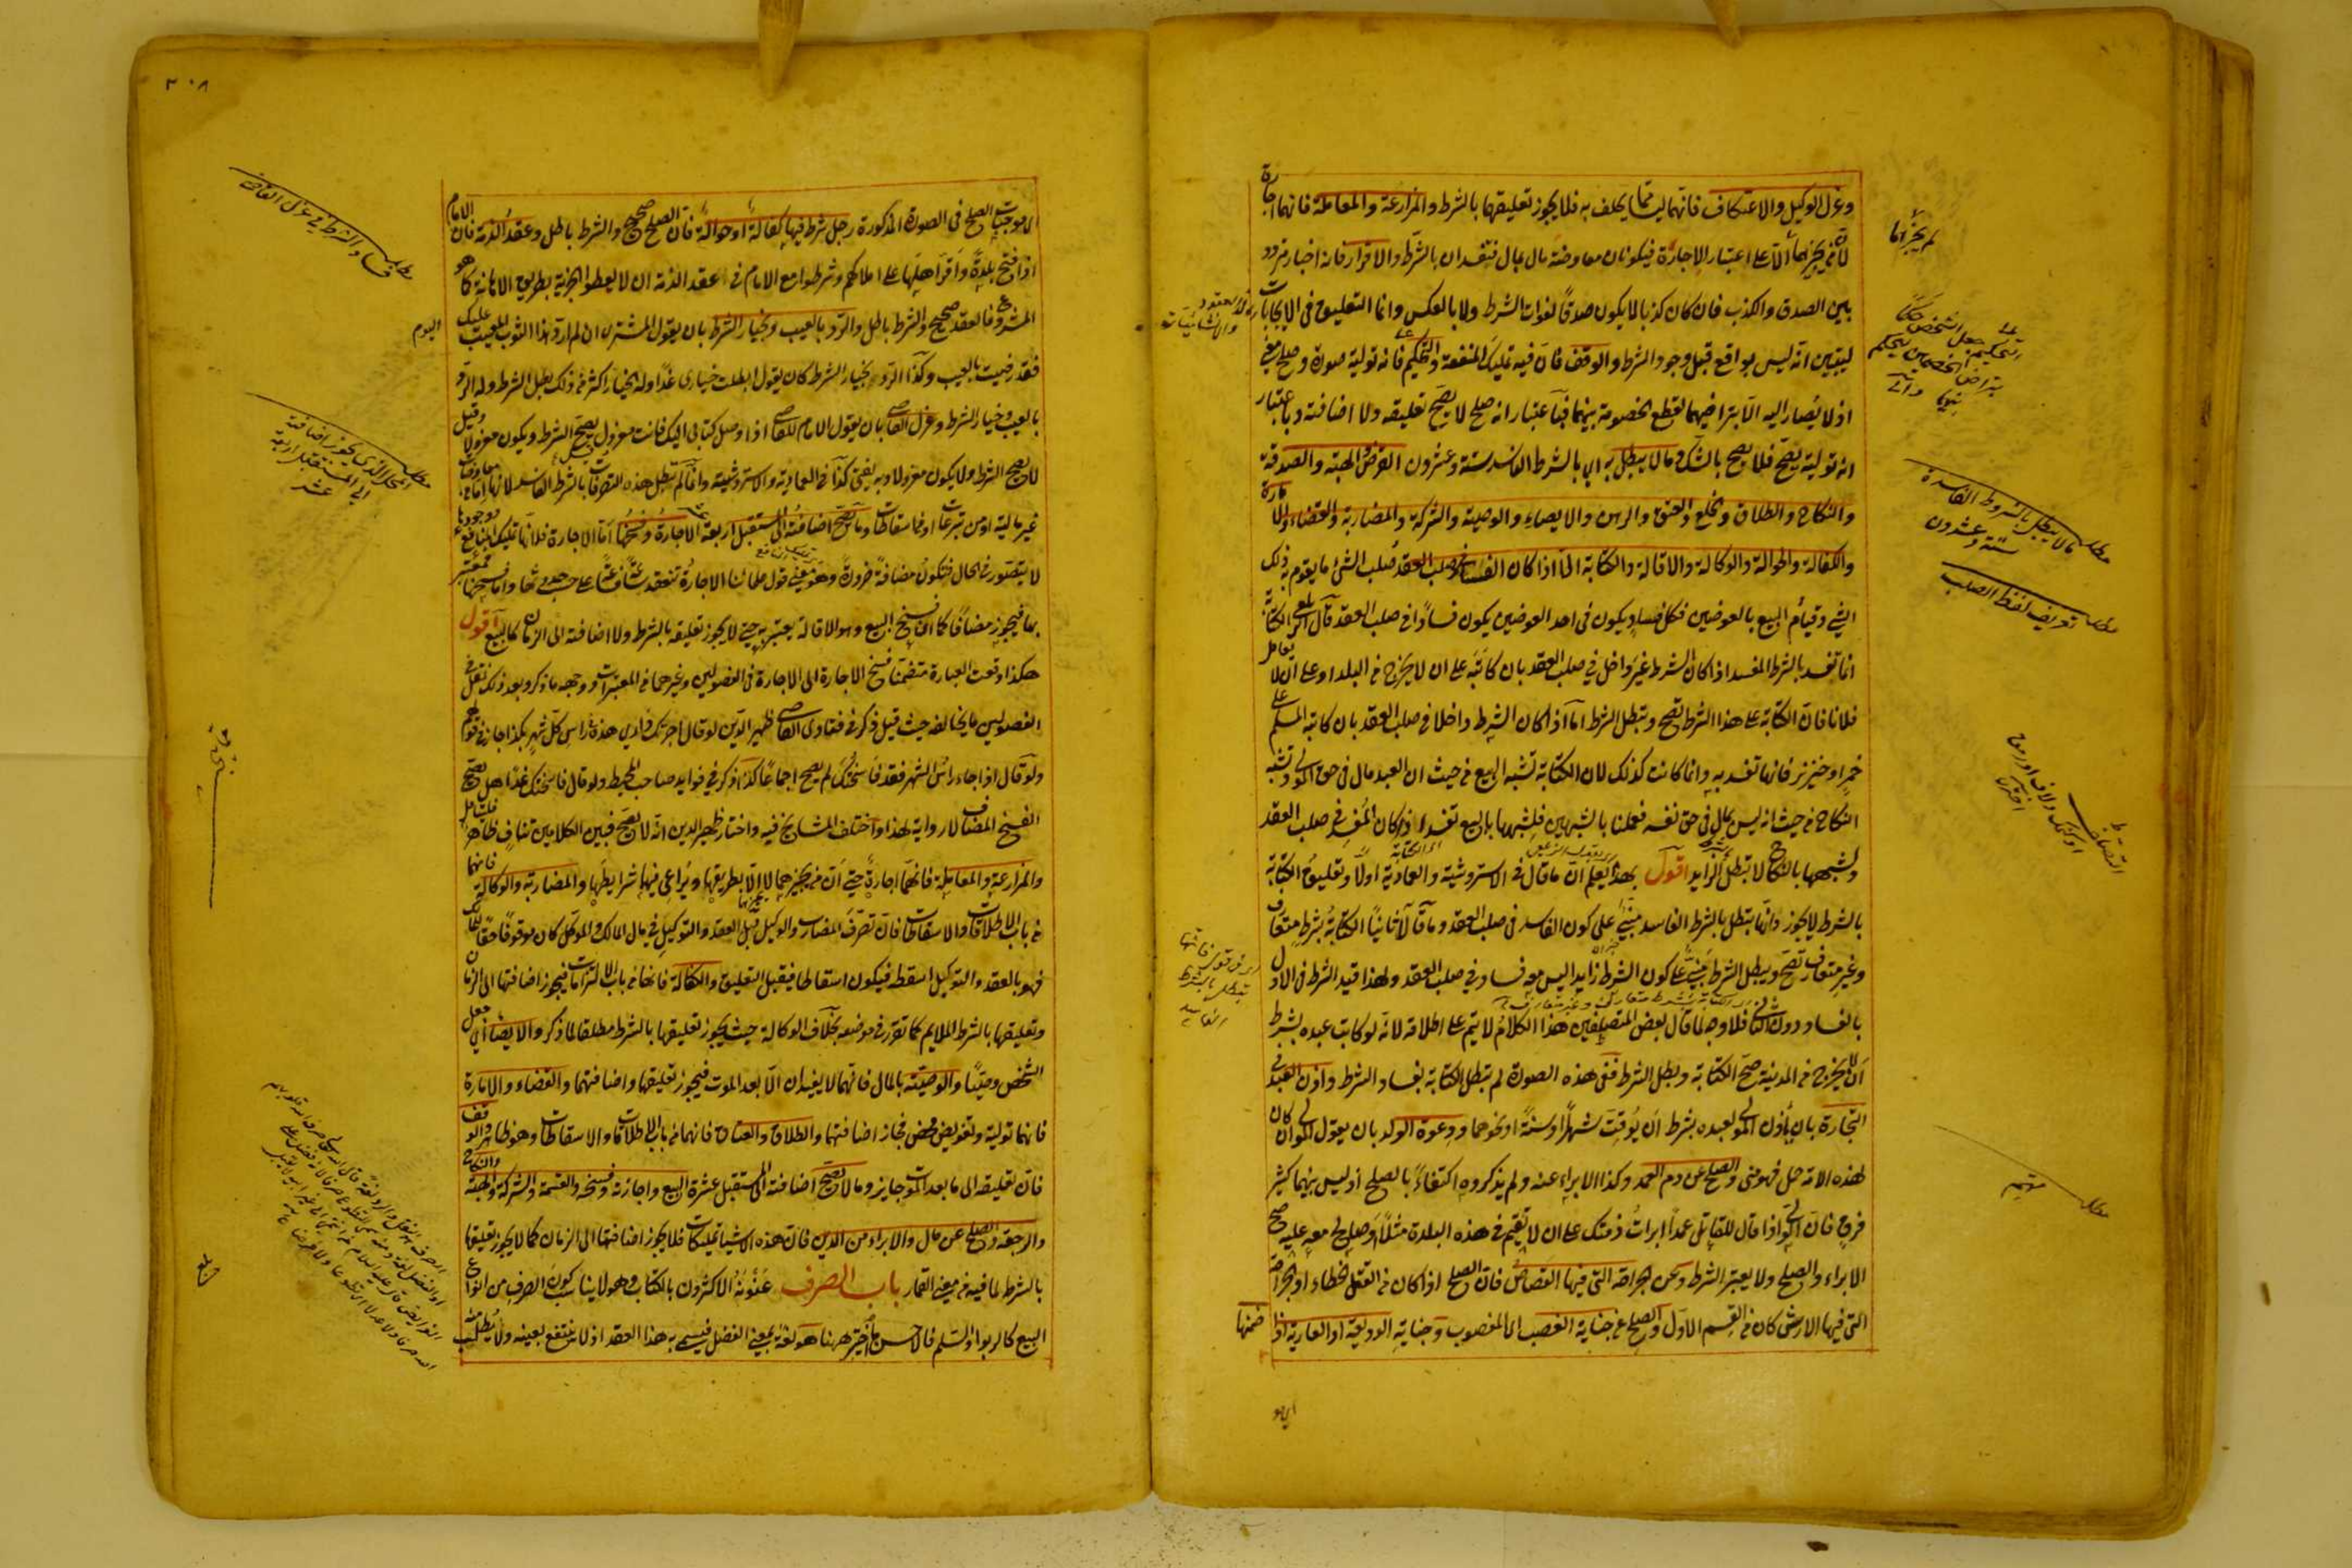 وعزل الوكيل والاعتكاف فانهما ليسا مما يحلف به فلا يجوز تعليقها بالشرط والمزارعة والمعاملة فانهما اجارة
لان من يجيزهما الا على اعتبار الاجارة فيكونان معاوضة مال بمال فتفسدان بالشرط والاقرار فانه اخبار متردد
بين الصدق والكذب فان كان كذبا لا يكون صدقا لفوات الشرط ولا بالعكس وانما التعليق فى الايجابات
ليتبين انه ليس بواقع قبل وجود الشرط والوقف فان فيه تمليك المنفعة والتحكيم فانه تولية صورة وصلح معنى
اذ لا يصار اليه الا بتراضيهما لقطع الخصومة بينهما فباعتبار انه صلح لا يصح تعليقه ولا اضافته وباعتبار
انه تولية يصح فلا يصح بالشك وما لا يبطل به اى بالشرط الفاسد ستة وعشرون القرض والهبة والصدقة
والنكاح والطلاق والخلع والعتق والرهن والايصاء والوصية والشركة والمضاربة والقضاء والامارة
والكفالة والحوالة والوكالة والاقالة والكتابة الا اذا كان الفساد فى صلب العقد صلب الشئ ما يقوم به ذلك
الشئ وقيام البيع بالعوضين فكل فساد يكون فى احد العوضين يكون فسادا فى صلب العقد قال الزيلعى الكتابة
انما تفسد بالشرط المفسد اذا كان الشرط غير داخل فى صلب العقد بان كاتبه على ان لا يخرج من البلد او على ان لا يعامل
فلانا فان الكتابة على هذا الشرط تصح ويبطل الشرط اما اذا كان الشرط داخلا فى صلب العقد بان كاتبه المسلم على
خمر او خنزير فانها تفسد به وانما كانت كذلك لان الكتابة تشبه البيع من حيث ان العبد مال فى حق المولى وتشبه
النكاح من حيث انه ليس بمال فى حق نفسه فعملنا بالشبهين فلشبهها بالبيع تفسد اذا كان المفسد فى صلب العقد
ولشبهها بالنكاح لا تبطل بالزايد اقول بهذا يعلم ان ما قال فى الاستروشنية والعمادية اولا وتعليق الكتابة
بالشرط لا يجوز وانها تبطل بالشرط الفاسد مبنى على كون الفاسد فى صلب العقد وما قالا ثانيا الكتابة بشرط متعارف
وغير متعارف تصح ويبطل الشرط مبنى على كون الشرط زايدا ليس فساده فى صلب العقد ولهذا قيد الشرط فى الاول
بالفساد دون الثانى فلا وجه لما قال بعض المتصلفين هذا الكلام لا يتم على اطلاقه لانه لو كاتب عبده بشرط
ان لا يخرج من المدينة صح الكتابة وبطل الشرط ففى هذه الصورة لم تبطل الكتابة بفساد الشرط واذن العبد فى
التجارة بان يأذن المولى لعبده بشرط ان يوقت شهرا او سنة او نحوهما ودعوة الولد بان يقول المولى ان كان
لهذه الامة حمل فهو منى والصلح عن دم العمد وكذا الابراء عنه ولم يذكروه اكتفاء بالصلح اذ ليس بينهما كثير
فرق فان الولى اذا قال للقاتل عمدا ابرأت ذمتك على ان لا تقيم فى هذه البلدة مثلا او صالح معه عليه صح
الابراء والصلح ولا يعتبر الشرط وعن الجراحة التى فيها القصاص فان الصلح اذا كان من القتل الخطاء او الجراحة
التى فيها الارش كان من القسم الاول والصلح عن جناية الغصب اى المغصوب وجناية الوديعة او العارية اذا ضمنها
لم يجزها
التحكيم جعل الشخص حكما
بتراضى الخصمين ليحكم
بينهما
مطلب ما لا يبطل بالشروط الفاسدة
ستة وعشرون
مطلب تعريف لفظ الصلب
مطلب مهم
٣٠٨
الامام
لا موجبات الصلح فى الصورة المذكورة رجل شرط فيها كفالة او حوالة فان الصلح صحيح والشرط باطل وعقد الذمة فان
اذا فتح بلدة واقر اهلها على املاكهم وشرطوا مع الامام فى عقد الذمة ان لا يعطوا الجزية بطريق الاهانة كما هو
المشروع فالعقد صحيح والشرط باطل والرد بالعيب وبخيار الشرط بان يقول المشترى ان لم ارد هذا الثوب المعيب عليك
اليوم
فقد رضيت بالعيب وكذا الرد بخيار الشرط كان يقول ابطلت خيارى غدا وله الخيار اكثر من ذلك بطل الشرط وله الرد
بالعيب وخيار الشرط وعزل القاضى بان يقول الامام للقاضى اذا وصل كتابى اليك فانت معزول يصح الشرط ويكون معزولا وقيل
لا يصح الشرط ولا يكون معزولا وبه يفتى كذا فى العمادية والاستروشنية وانما لم تبطل هذه التصرفات بالشرط الفاسد لانها اما معاوضات
غير مالية او من تبرعات او من اسقاطات وما يصح اضافته الى المستقبل اربعة عشر الاجارة وفسخها اما الاجارة فلانها تمليك المنافع ووجودها
لا يتصور فى الحال فتكون مضافة ضرورة وهو معنى قول علمائنا الاجارة تنعقد ساعة فساعة على حسب حدوثها واما فسخها فمعتبر
بها فيجوز مضافا كما ان فسخ البيع وهو الاقالة يعتبر به حتى لا يجوز تعليقه بالشرط ولا اضافته الى الزمان كالبيع اقول
هكذا وقعت العبارة متضمنا فسخ الاجارة الى الاجارة فى الفصولين وغيرهما فى المعتبرات ووجهه ما ذكر وبعد ذلك نقل فى
الفصولين ما يخالفه حيث قيل ذكر فى فتاوى القاضى ظهير الدين لو قال اجرتك دارى هذه رأس كل شهر بكذا جاز فى قولهم
ولو قال اذا جاء رأس الشهر فقد فاسختك لم يصح اجماعا كذا ذكر فى فوايد صاحب المحيط ولو قال فاسختك غدا هل يصح
الفسخ المضاف لا رواية لهذا واختلف المشايخ فيه واختار ظهير الدين انه لا يصح فبين الكلامين تناف ظاهر فليتأمل
والمزارعة والمعاملة فانهما اجارة حتى ان من يجيزهما لا يجيزهما الا بطريقها ويراعى فيها شرايطها والمضاربة والوكالة فانهما
من باب الاطلاقات والاسقاطات فان تصرف المضارب والوكيل قبل العقد والتوكيل فى مال المالك والموكل كان موقوفا حقا للمالك
فهو بالعقد والتوكيل اسقطه فيكون اسقاطا فيقبل التعليق والكفالة فانها من باب الالتزامات فيجوز اضافتها الى الزمان
وتعليقها بالشرط الملايم كما تقرر فى موضعه بخلاف الوكالة حيث يجوز تعليقها بالشرط مطلقا لما ذكر والايصاء اى جعل
الشخص وصيا والوصية بالمال فانهما لا يفيدان الا بعد الموت فيجوز تعليقها واضافتهما والقضاء والامارة
فانهما تولية وتفويض محض فجاز اضافتهما والطلاق والعتاق فانهما من باب الاطلاقات والاسقاطات وهو ظاهر والوقف
فان تعليقه الى ما بعد الموت جايز وما لا تصح اضافته الى المستقبل عشرة البيع واجازته وفسخه والقسمة والشركة والهبة والنكاح
والرجعة والصلح عن مال والابراء من الدين فان هذه الاشيا تمليكات فلا يجوز اضافتها الى الزمان كما لا يجوز تعليقها
بالشرط لما فيه من معنى القمار باب الصرف عنونه الاكثرون بالكتاب وهو لا يناسب كون الصرف من انواع
البيع كالربوا والسلم فالاحسن ما اختير ههنا هو لغة بمعنى الفضل فيسمى به هذا العقد اذ لا ينتفع بعينه ولا يطلب منه
مطلب فساد الشرط فى عزل القاضى
مطلب المحل الذى يجوز اضافته
الى المستقبل اربعة
عشر
بلغ